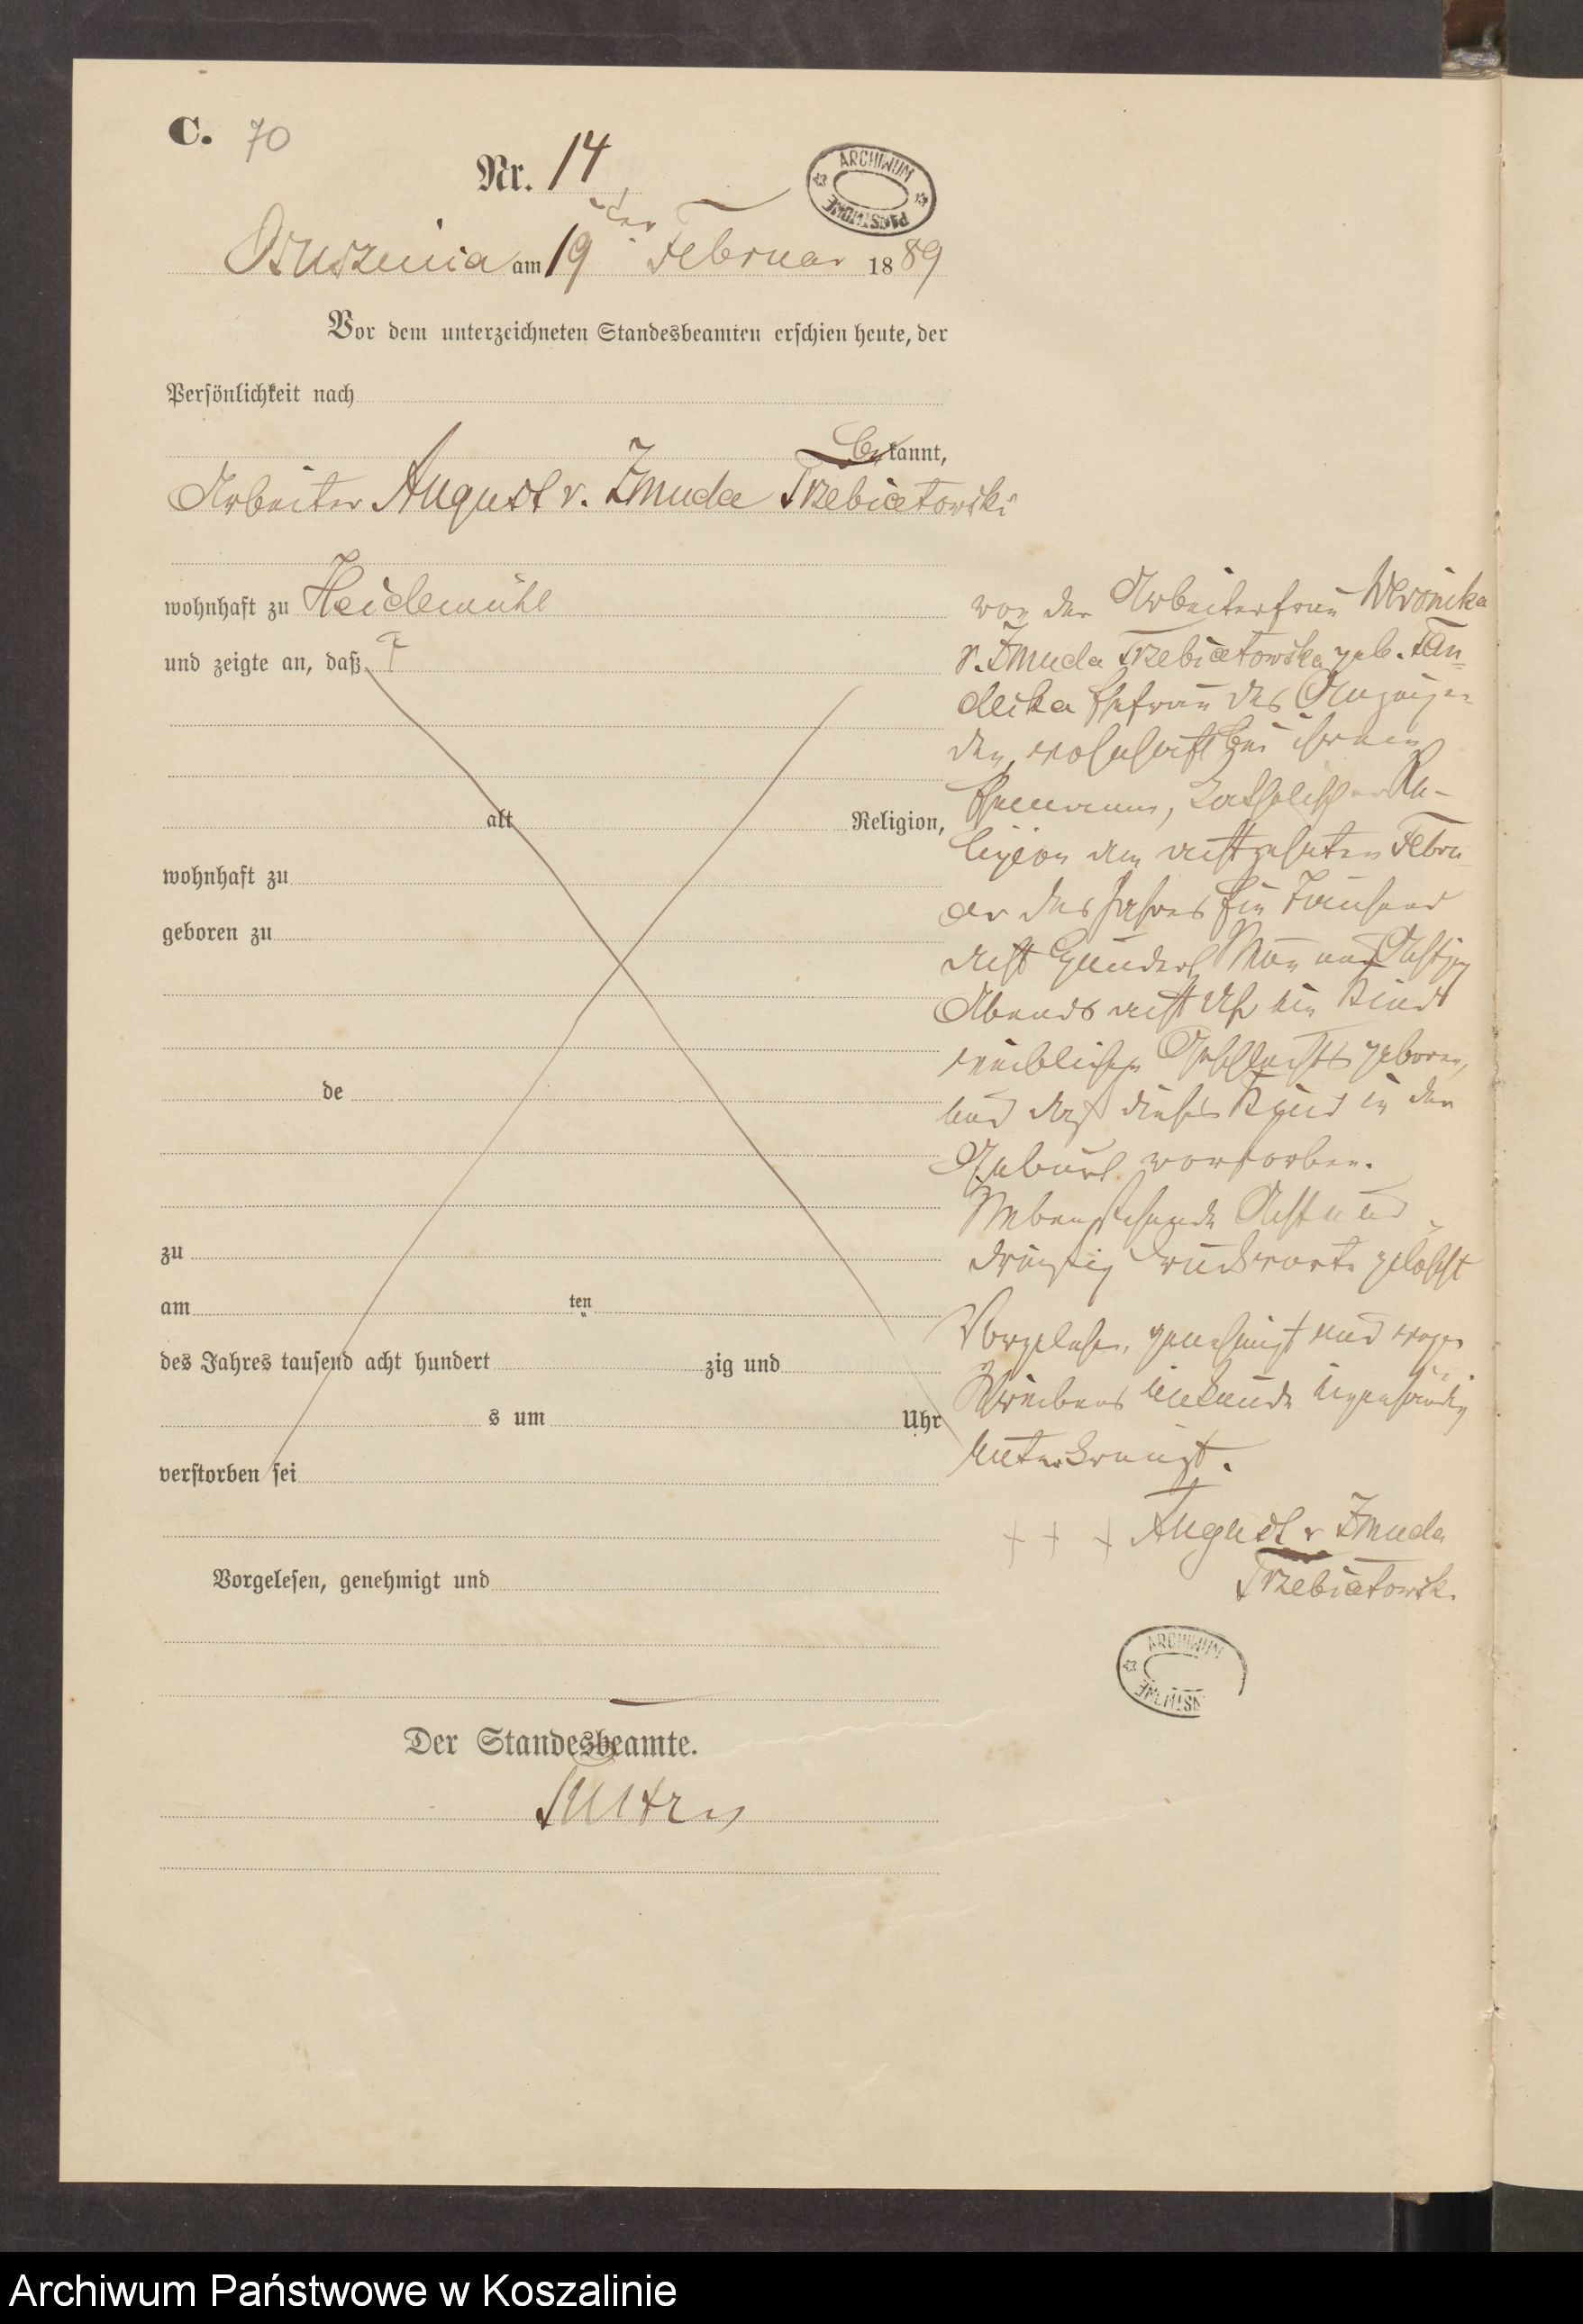 C. 70
Nr. 14
ARCHIWUM PAŃSTWOWE
Osusznica am 19 ten Februar 1889
Vor dem unterzeichneten Standesbeamten erschien heute, der
Persönlichkeit nach
bekannt,
Arbeiter August v. Zmuda Trzebiatowski
wohnhaft zu Heidemühl
und zeigte an, daß
alt Religion,
wohnhaft zu
geboren zu
de
zu
am ten
des Jahres tausend acht hundert zig und
s um Uhr
verstorben sei
Vorgelesen, genehmigt und
Der Standesbeamte.
von der Arbeiterfrau Weronika
v. Zmuda Trzebiatowska geb.
Ehefrau des Anzeigen-
den, wohnhaft bei ihrem
Ehemann, katholischer Re-
ligion am achtzehnten Febru
ar des Jahres Ein Tausend
acht Hundert Neun und Achtzig
Abends acht Uhr ein Kind
weiblichen Geschlechts geboren,
und daß dieses Kind in der
Geburt verstorben.
Nebenstehende Acht und
dreißig Druckworte gelöscht
Vorgelesen, genehmigt und wegen
Schreibens unkunde eigenhändig
unterkreuzt.
+ + + August v Zmuda
Trzebiatowsk.
ARCHIWUM
Archiwum Państwowe w Koszalinie